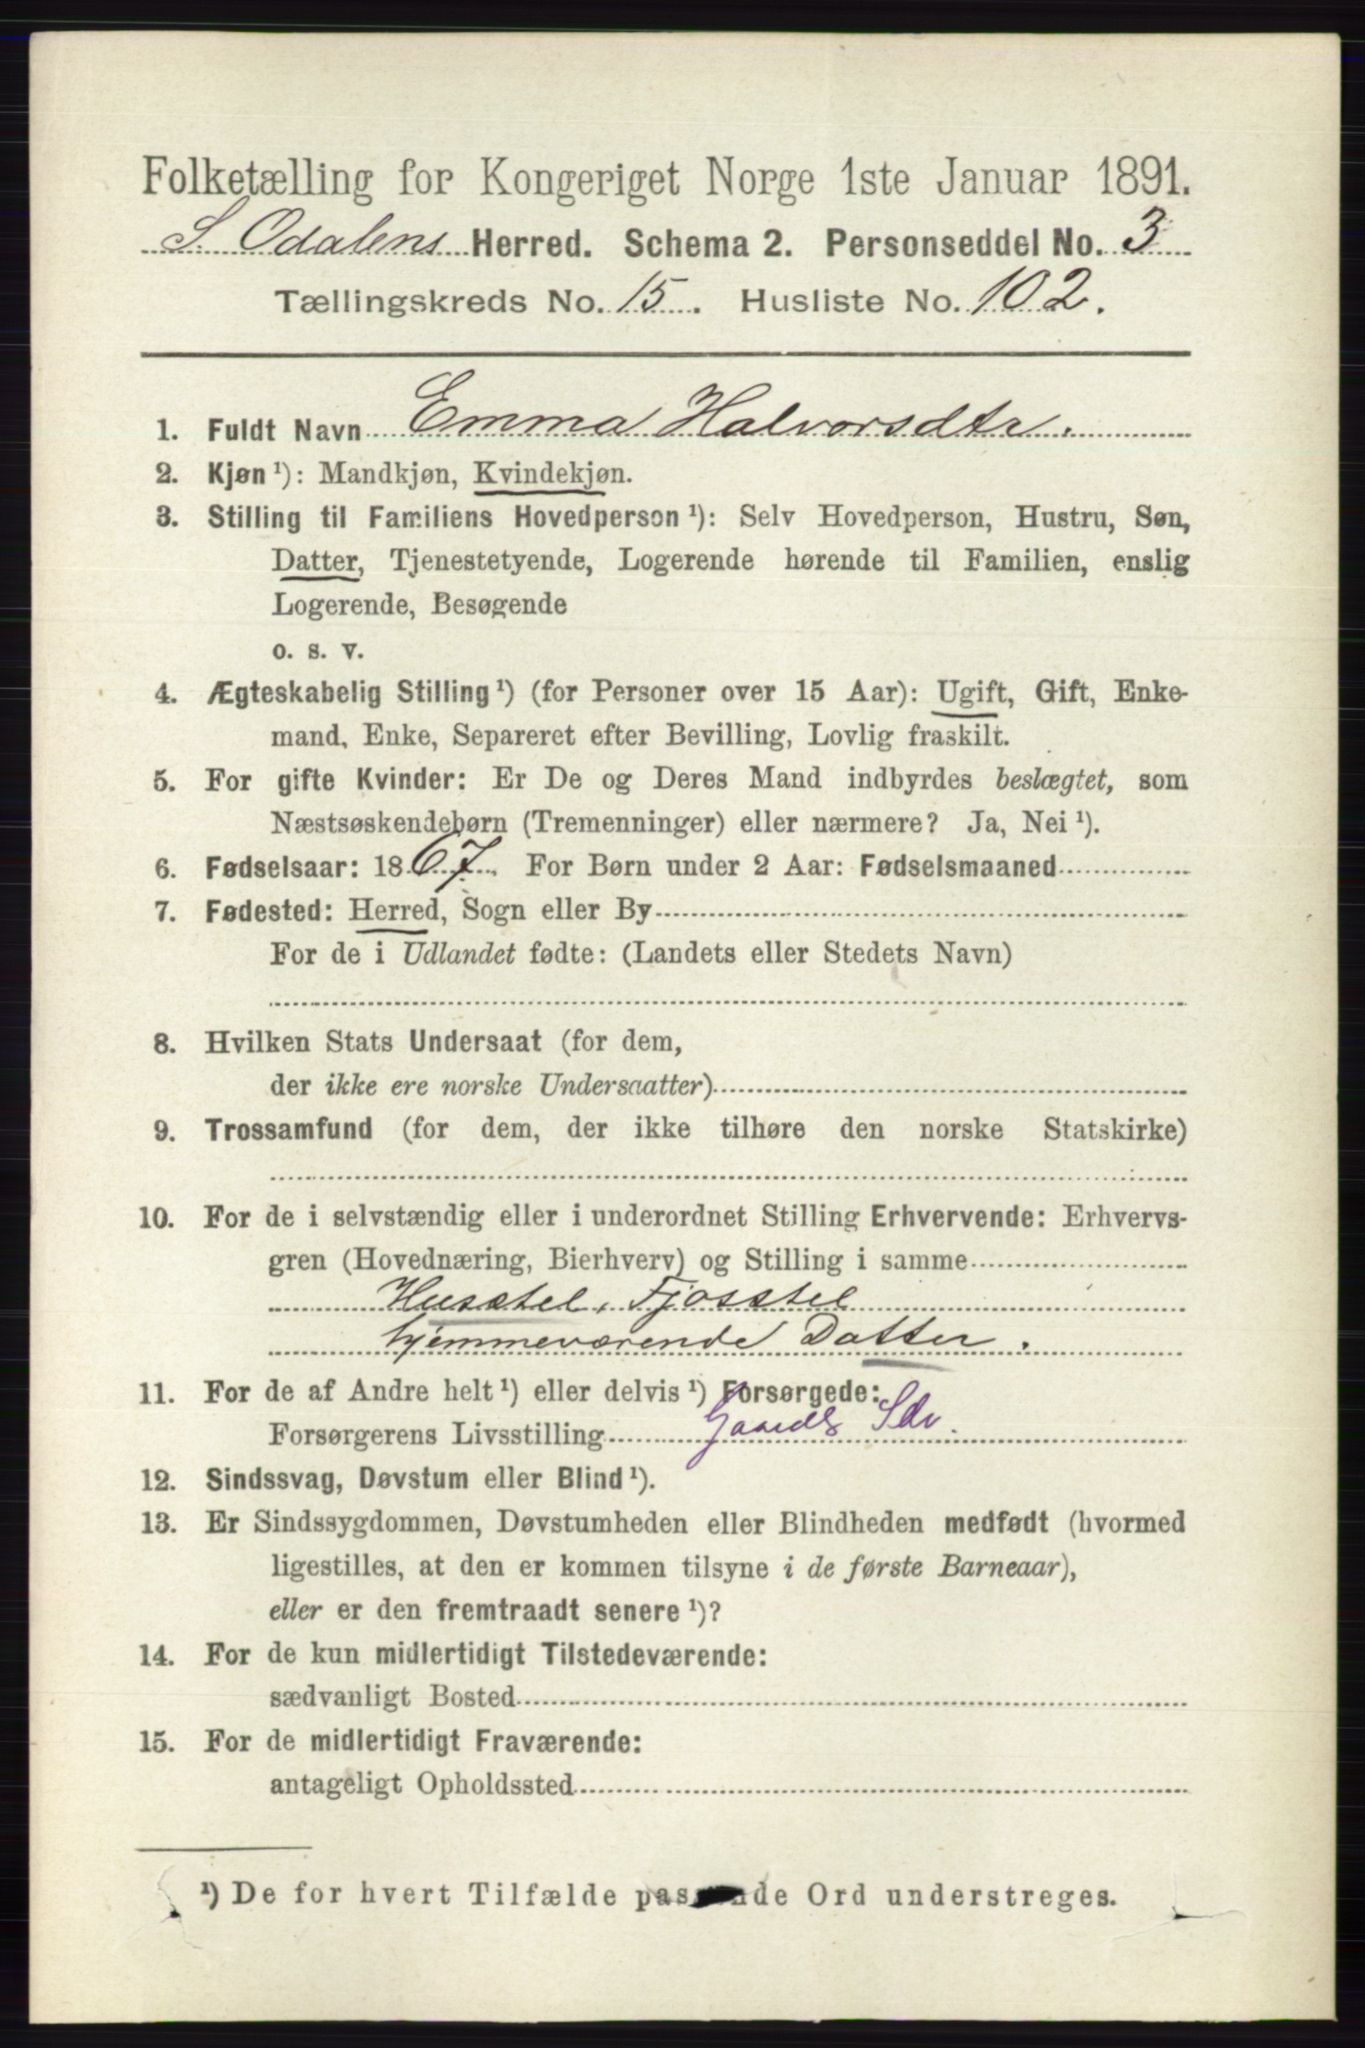 Folketælling for Kongeriget Norge 1ste Januar 1891.
S. Odalens Herred. Schema 2. Personseddel No. 3
Tællingskreds No. 15. Husliste No. 102.
1. Fuldt Navn Emma Halvorsdtr.
2. Kjøn ¹): Mandkjøn, Kvindekjøn.
3. Stilling til Familiens Hovedperson ¹): Selv Hovedperson, Hustru, Søn,
Datter, Tjenestetyende, Logerende hørende til Familien, enslig
Logerende, Besøgende
o. s. v.
4. Ægteskabelig Stilling ¹) (for Personer over 15 Aar): Ugift, Gift, Enke-
mand, Enke, Separeret efter Bevilling, Lovlig fraskilt.
5. For gifte Kvinder: Er De og Deres Mand indbyrdes beslægtet, som
Næstsøskendebørn (Tremenninger) eller nærmere? Ja, Nei ¹).
6. Fødselsaar: 1867. For Børn under 2 Aar: Fødselsmaaned
7. Fødested: Herred, Sogn eller By
For de i Udlandet fødte: (Landets eller Stedets Navn)
8. Hvilken Stats Undersaat (for dem,
der ikke ere norske Undersaatter)
9. Trossamfund (for dem, der ikke tilhøre den norske Statskirke)
10. For de i selvstændig eller i underordnet Stilling Erhvervende: Erhvervs-
gren (Hovednæring, Bierhverv) og Stilling i samme
Husstel, Fjosstel
hjemmeværende Datter.
11. For de af Andre helt ¹) eller delvis ¹) Forsørgede:
Forsørgerens Livsstilling Gaards Sdv.
12. Sindssvag, Døvstum eller Blind ¹).
13. Er Sindssygdommen, Døvstumheden eller Blindheden medfødt (hvormed
ligestilles, at den er kommen tilsyne i de første Barneaar),
eller er den fremtraadt senere ¹)?
14. For de kun midlertidigt Tilstedeværende:
sædvanligt Bosted
15. For de midlertidigt Fraværende:
antageligt Opholdssted
¹) De for hvert Tilfælde passende Ord understreges.